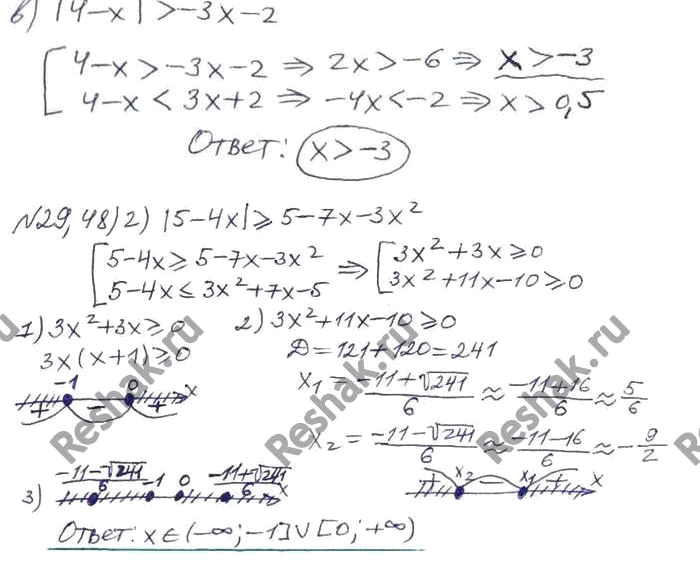 в) |4-x| > -3x-2
[ 4-x > -3x-2 ⇒ 2x > -6 ⇒ x > -3
4-x < 3x+2 ⇒ -4x < -2 ⇒ x > 0,5
Ответ: x > -3
№29,48) 2) |5-4x| ⩾ 5-7x-3x²
[ 5-4x ⩾ 5-7x-3x² ⇒ [ 3x²+3x ⩾ 0
5-4x ⩽ 3x²+7x-5 3x²+11x-10 ⩾ 0
1) 3x²+3x ⩾ 0 2) 3x²+11x-10 ⩾ 0
3x(x+1) ⩾ 0 D = 121+120 = 241
-1 0 x
+ - +
x₁ = (-11+√241)/6 ≈ (-11+16)/6 ≈ 5/6
x₂ = (-11-√241)/6 ≈ (-11-16)/6 ≈ -9/2
+ x₂ - x₁ + x
3) (-11-√241)/6 -1 0 (-11+√241)/6 x
Ответ: x ∈ (-∞; -1] ∪ [0; +∞)
Reshak.ru
Reshak.ru
Reshak.ru